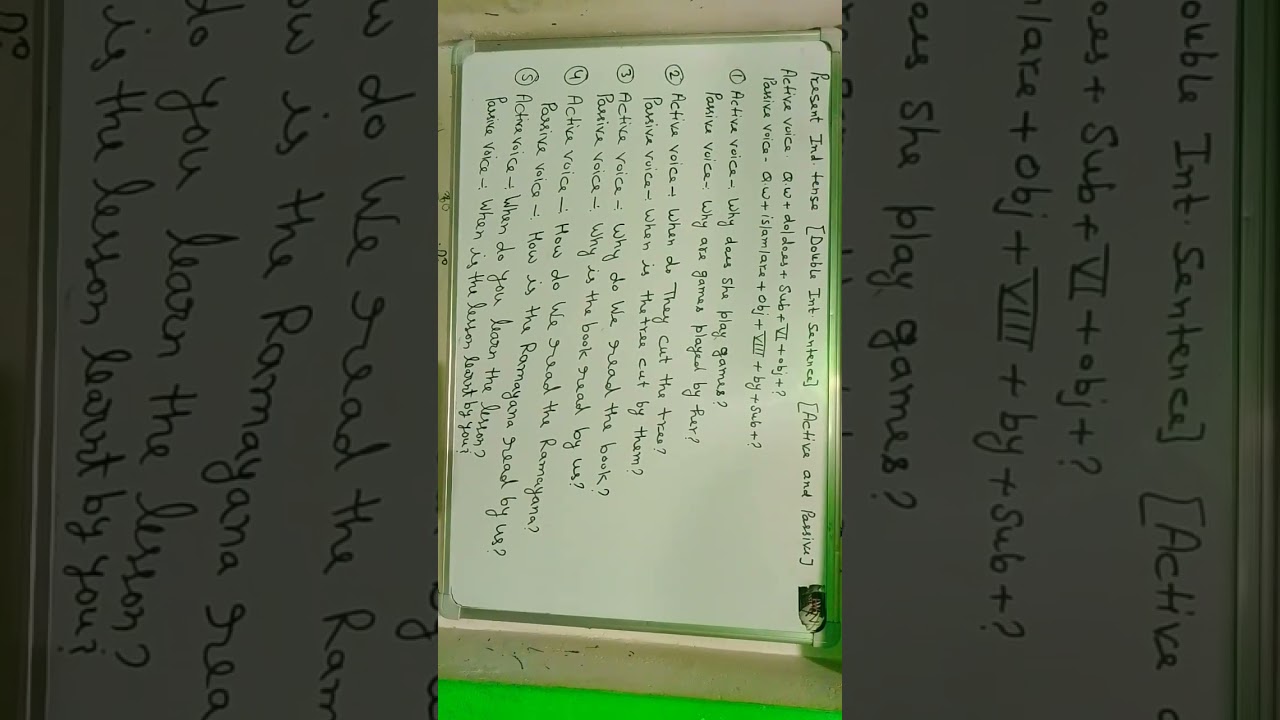 Present Ind. tense [Double Int. Sentence] [Active and Passive]
Active voice- Q.W + do/does + Sub + VI + obj + ?
Passive voice- Q.W + is/am/are + obj + VIII + by + Sub + ?
① Active voice-: Why does She play games?
Passive voice-: Why are games played by her?
② Active voice-: When do They cut the tree?
Passive voice-: When is the tree cut by them?
③ Active voice-: Why do We read the book?
Passive voice-: Why is the book read by us?
④ Active voice-: How do We read the Ramayana?
Passive voice-: How is the Ramayana read by us?
⑤ Active voice-: When do you learn the lesson?
Passive voice-: When is the lesson learnt by you?